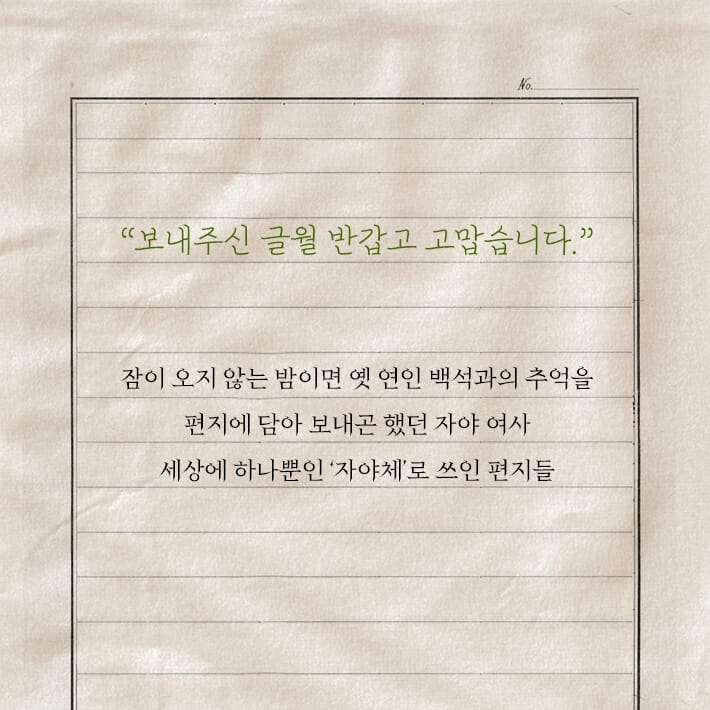 No.
“보내주신 글월 반갑고 고맙습니다.”
잠이 오지 않는 밤이면 옛 연인 백석과의 추억을
편지에 담아 보내곤 했던 자야 여사
세상에 하나뿐인 ‘자야체’로 쓰인 편지들